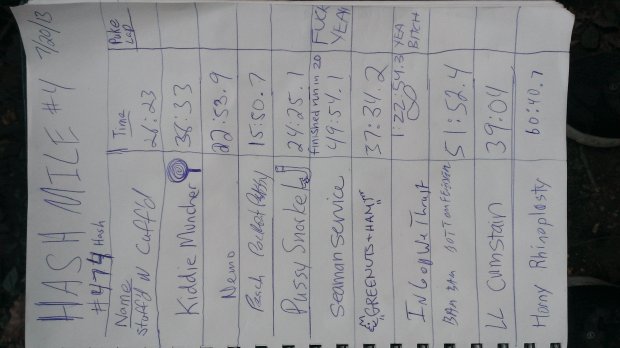 HASH MILE #4 7/20/13
#474 Hash
Name Time Puke Lap
Stuff'd N Cuff'd 26:23
Kiddie Muncher 36:33
Nemo 22:53.9
Peach Pocket Pussy 15:50.7
Pussy Snorkel 24:25.1
Seaman Service finished run in 20 49:54.1 FUCK YEAH
GREENUTS + HAM! 37:34.2
IN GOD WE Thrust 1:22:54.3 YEA BITCH
BAM BAM BOTTOMFEEDER 51:52.4
LL Cumstain 39:04
Horny Rhinoplasty 60:40.7